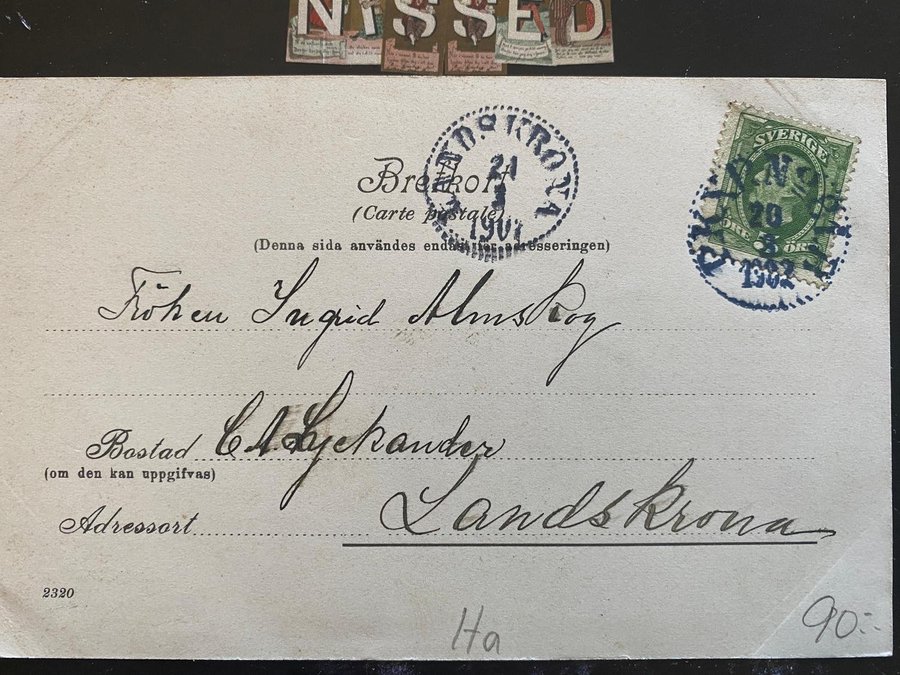 NISSED
LANDSKRONA
21
3
1902
SVERIGE
EKTEN
20
3
1902
ÖRE ÖRE
Brefkort
(Carte postale)
(Denna sida användes endast för adresseringen)
Fröken Ingrid Almskog
Bostad C A Lyckander
(om den kan uppgifvas)
Adressort Landskrona
2320
Ha
90:-